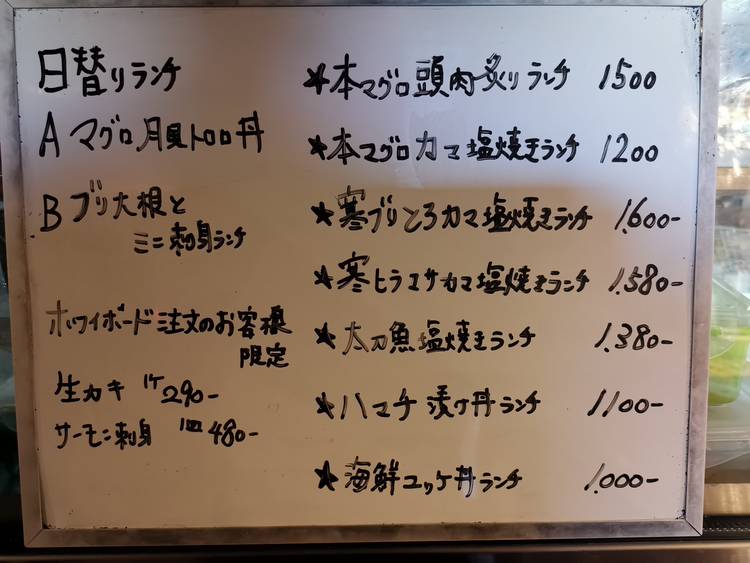 日替りランチ
A マグロ月見トロロ丼
B ブリ大根と
ミニ刺身ランチ
ホワイボード注文のお客様
限定
生カキ 1ケ 290-
サーモン刺身 1皿 480-
★本マグロ頭肉炙りランチ 1500
★本マグロカマ塩焼きランチ 1200
★寒ブリとろカマ塩焼きランチ 1.600-
★寒ヒラマサカマ塩焼きランチ 1.580-
★太刀魚塩焼きランチ 1.380-
★ハマチ漬け丼ランチ 1100-
★海鮮ユッケ丼ランチ 1.000-